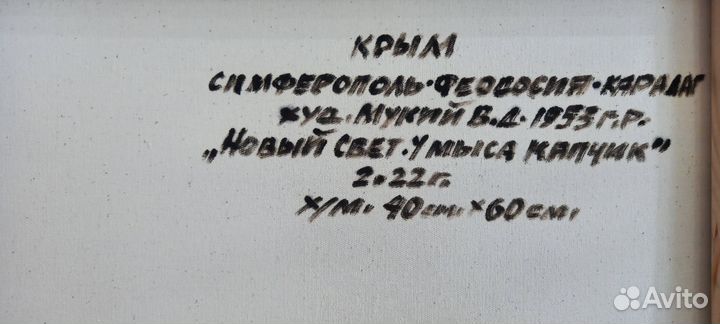 КРЫМ
СИМФЕРОПОЛЬ·ФЕОДОСИЯ·КАРАДАГ
ХУД. МУКИЙ В.Д. 1953 г.р.
„НОВЫЙ СВЕТ. У МЫСА КАПЧИК"
2.22 г.
Х/М. 40 см. × 60 см.
Avito